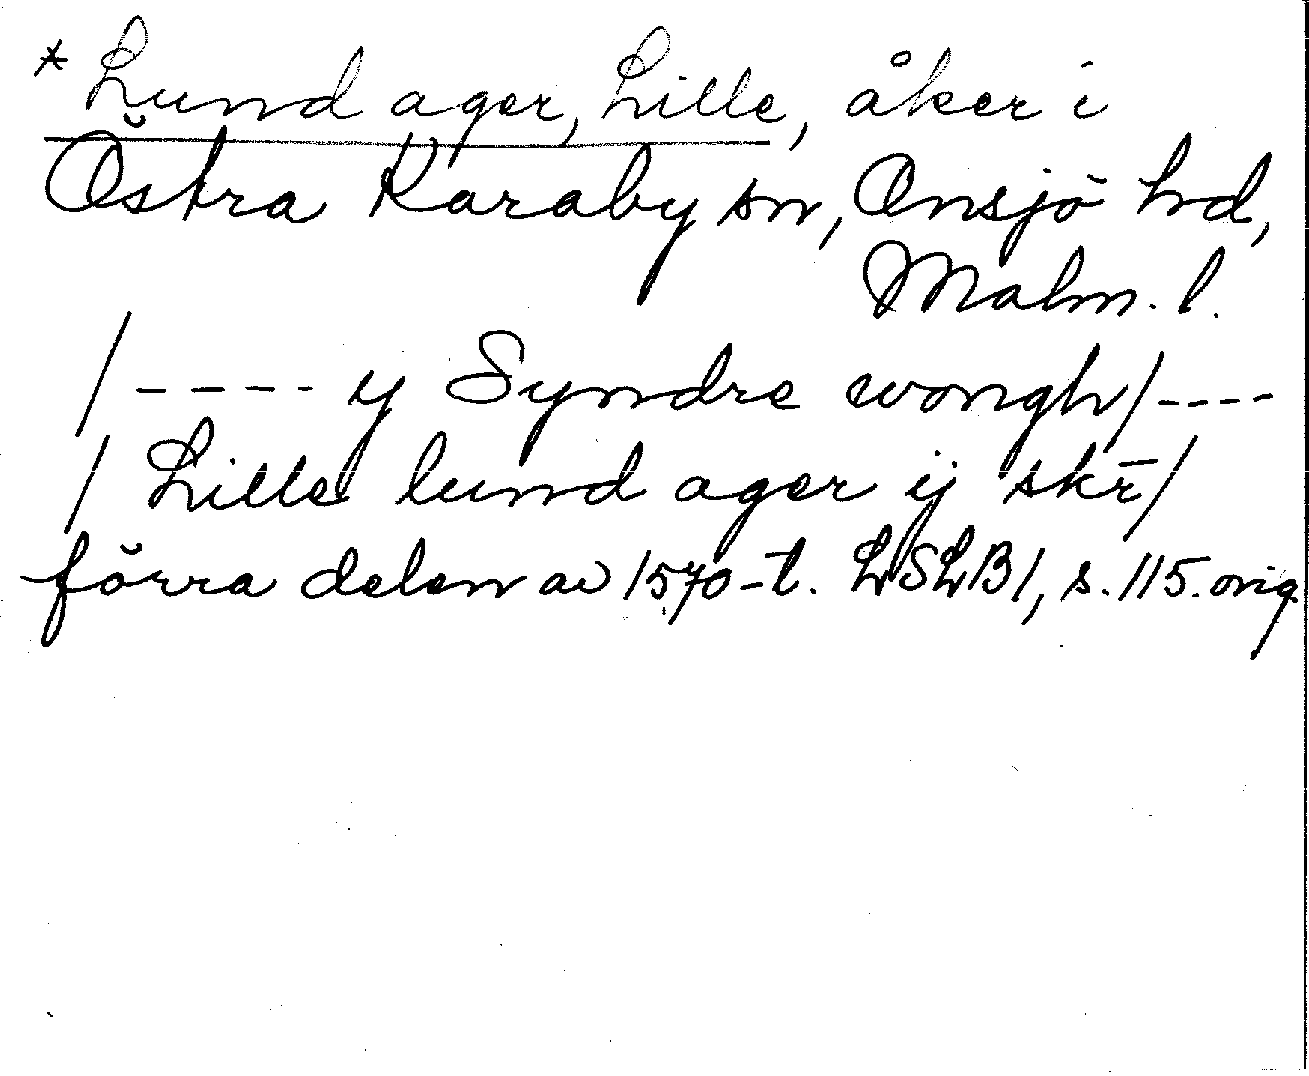 * Lund ager, Lille, åker i
Östra Karaby sn, Onsjö hd,
Malm. l.
/ - - - - y Syndre wongh / - - - -
/ Lille lund ager ij skr̄ /
förra delen av 1570-t. LSLB 1, s. 115. orig.